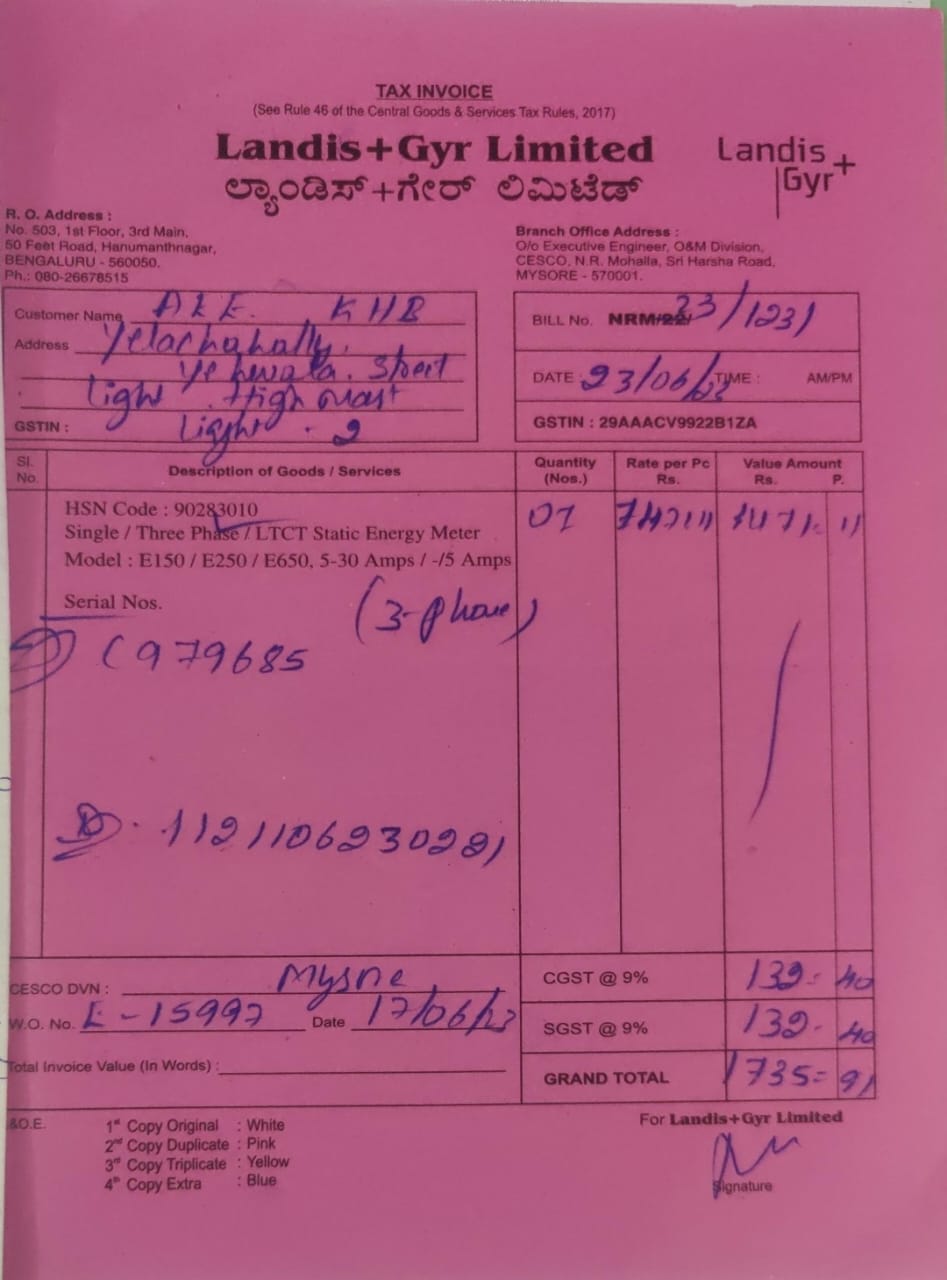 TAX INVOICE
(See Rule 46 of the Central Goods & Services Tax Rules, 2017)
Landis+Gyr Limited
ಲ್ಯಾಂಡಿಸ್+ಗೇರ್ ಲಿಮಿಟೆಡ್
Landis
Gyr+
R. O. Address :
No. 503, 1st Floor, 3rd Main,
50 Feet Road, Hanumanthnagar,
BENGALURU - 560050.
Ph.: 080-26678515
Branch Office Address :
O/o Executive Engineer, O&M Division,
CESCO, N.R. Mohalla, Sri Harsha Road,
MYSORE - 570001.
Customer Name AEE. KHB
Address Yelachahally.
Yelwala. Street
Light . High mast
GSTIN : Light . 2
BILL No. NRM/22/ 23/1231
DATE : 23/06/23 TIME : AM/PM
GSTIN : 29AAACV9922B1ZA
Sl. No.
Description of Goods / Services
Quantity (Nos.)
Rate per Pc Rs.
Value Amount Rs. P.
HSN Code : 90283010
Single / Three Phase / LTCT Static Energy Meter
Model : E150 / E250 / E650, 5-30 Amps / -/5 Amps
01 1471. 11
Serial Nos.
(3-phase)
979685
. 1121106230221
CESCO DVN : Mysore
W.O. No. E-15997 Date 17/06/23
Total Invoice Value (In Words) :
CGST @ 9% 132- 40
SGST @ 9% 132- 40
GRAND TOTAL 1735= 91
&O.E.
1st Copy Original : White
2nd Copy Duplicate : Pink
3rd Copy Triplicate : Yellow
4th Copy Extra : Blue
For Landis+Gyr Limited
Signature